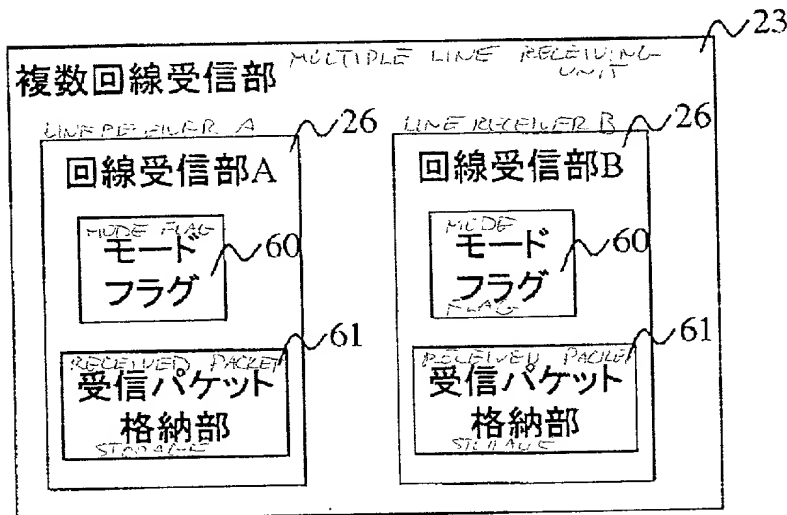 23
複数回線受信部
MULTIPLE LINE RECEIVING
UNIT
LINE RECEIVER A
26
回線受信部A
MODE FLAG
モード
フラグ
60
RECEIVED PACKET
61
受信パケット
格納部
STORAGE
LINE RECEIVER B
26
回線受信部B
MODE
モード
フラグ
FLAG
60
RECEIVED PACKET
61
受信パケット
格納部
STORAGE